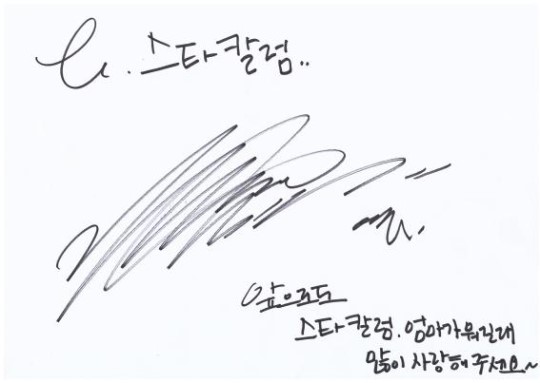 스타칼럼..
앞으로도
스타칼럼. 엄마가뭐길래
많이 사랑해 주세요~